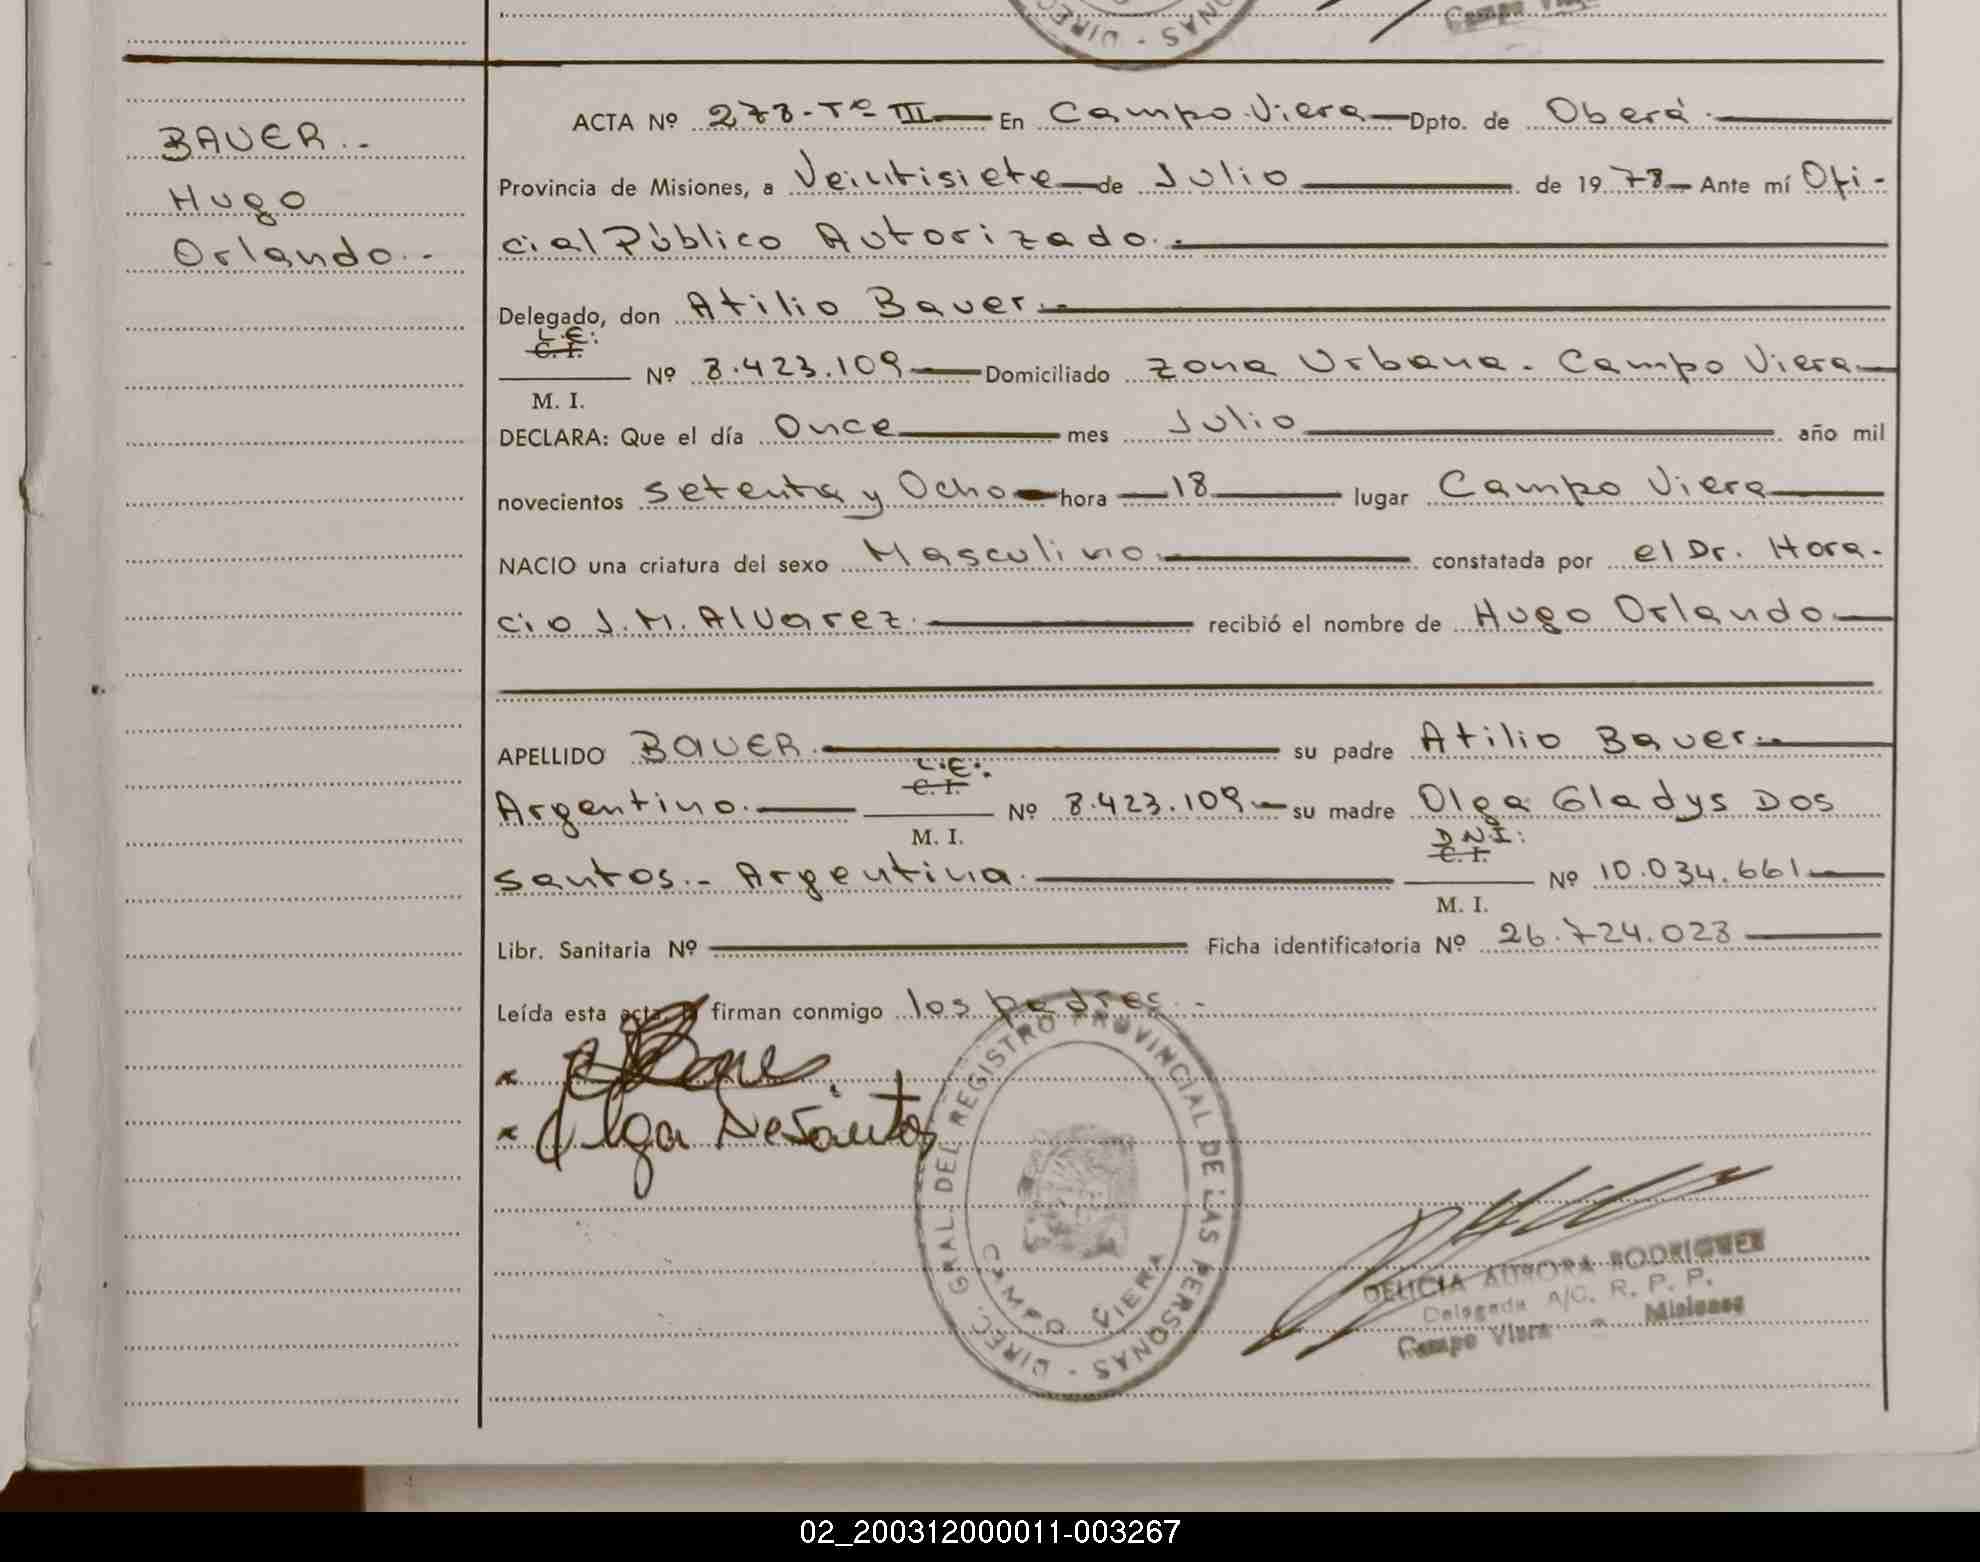 Campo Viera
DIREC. PERSONAS
BAUER.-
Hugo
Orlando.-
ACTA Nº 278-Tº III En Campo Viera Dpto. de Oberá.
Provincia de Misiones, a Veintisiete de Julio de 1978 Ante mí Ofi-
cial Público Autorizado.-
Delegado, don Atilio Bauer.-
L.E:
C. I.
M. I. Nº 8.423.109 Domiciliado Zona Urbana. Campo Viera
DECLARA: Que el día Once mes Julio año mil
novecientos setenta y Ocho hora 18 lugar Campo Viera
NACIO una criatura del sexo Masculino. constatada por el Dr. Hora-
cio J. M. Alvarez. recibió el nombre de Hugo Orlando.
APELLIDO BAUER. su padre Atilio Bauer.-
Argentino. L.E:. C. I. M. I. Nº 8.423.109 su madre Olga Gladys Dos
Santos.- Argentina. D.N.I: C. I. M. I. Nº 10.034.661
Libr. Sanitaria Nº Ficha identificatoria Nº 26.724.028
Leída esta acta, firman conmigo los padres.-
Olga DeSantos
DIREC. GRAL. DEL REGISTRO PROVINCIAL DE LAS PERSONAS -
CAMPO VIERA
DELICIA AURORA RODRIGUEZ
Delegada A/C. R. P. P.
Campo Viera - Misiones
02_200312000011-003267